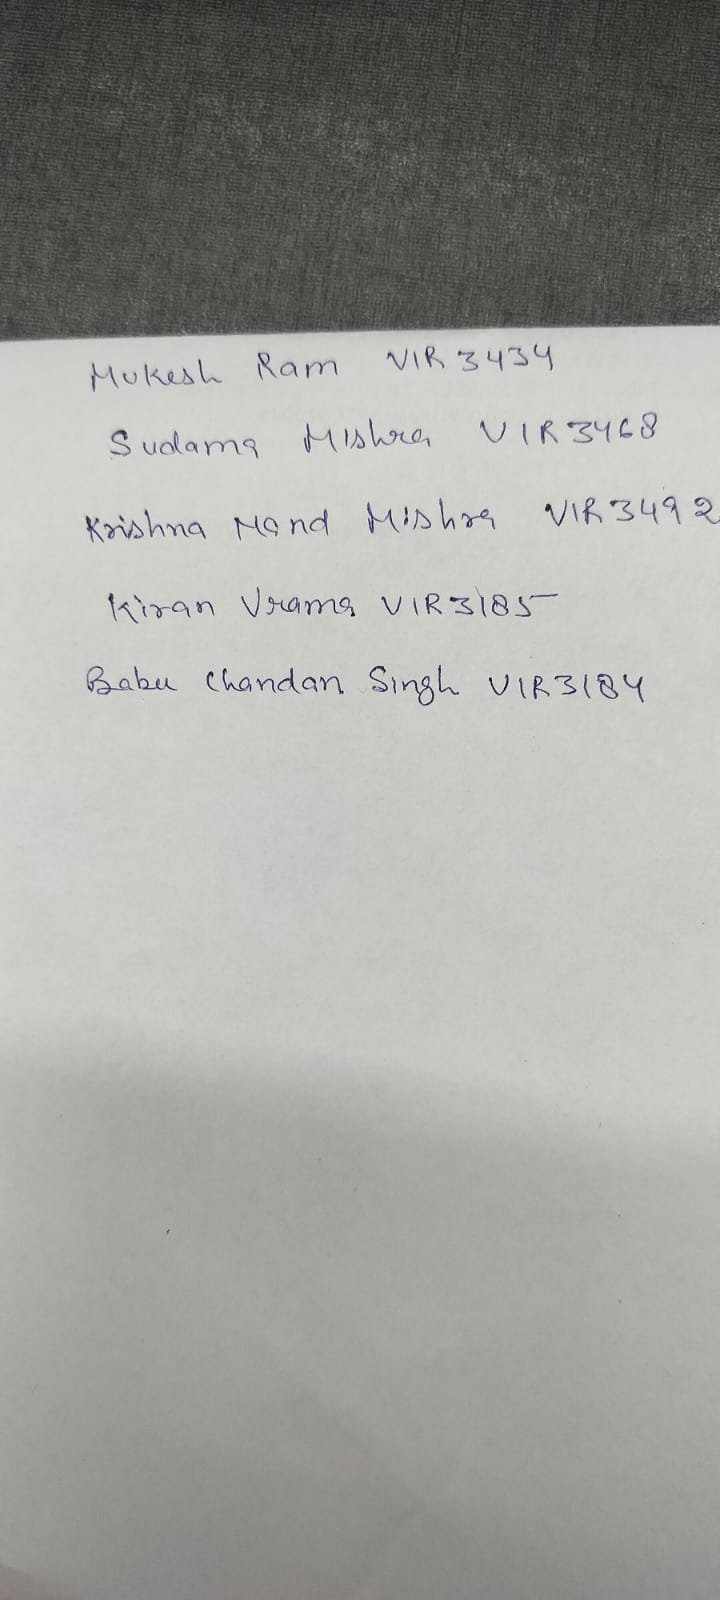 Mukesh Ram VIR 3434
Sudama Mishra VIR3468
Krishna Nand Mishra VIR3492
Kiran Vrama VIR3185
Babu Chandan Singh VIR3184